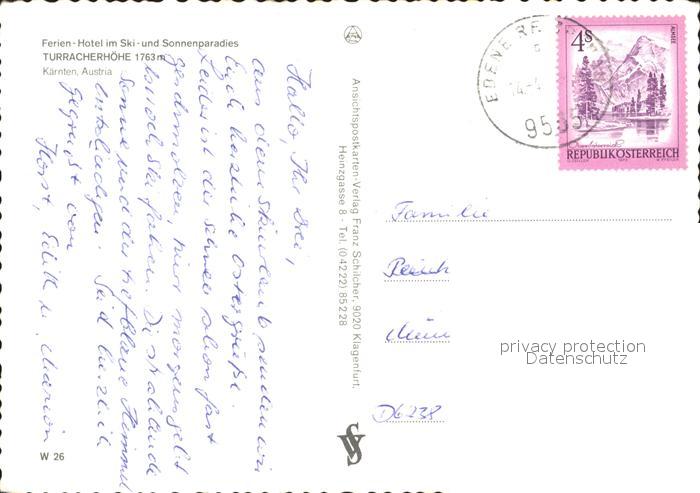 Ferien-Hotel im Ski- und Sonnenparadies
TURRACHERHÖHE 1763 m
Kärnten, Austria
Hallo, Ihr drei,
aus dem Skiurlaub senden wir
Euch herzliche Ostergrüße.
Leider ist der Schnee schon fast
geschmolzen, nur morgens geht
noch Skifahren. Die strahlende
Sonne und der tiefblaue Himmel
entschädigen. Seid herzlich
gegrüßt von
Horst, Edith u. Marion
W 26
Ansichtspostkarten-Verlag Franz Schilcher, 9020 Klagenfurt,
Heinzgasse 8 - Tel. (0 42 22) 85 2 28
EBENE REICHENAU
9565
4 S
ALMSEE
Oberösterreich
REPUBLIK ÖSTERREICH
Familie
D 6238
privacy protection
Datenschutz